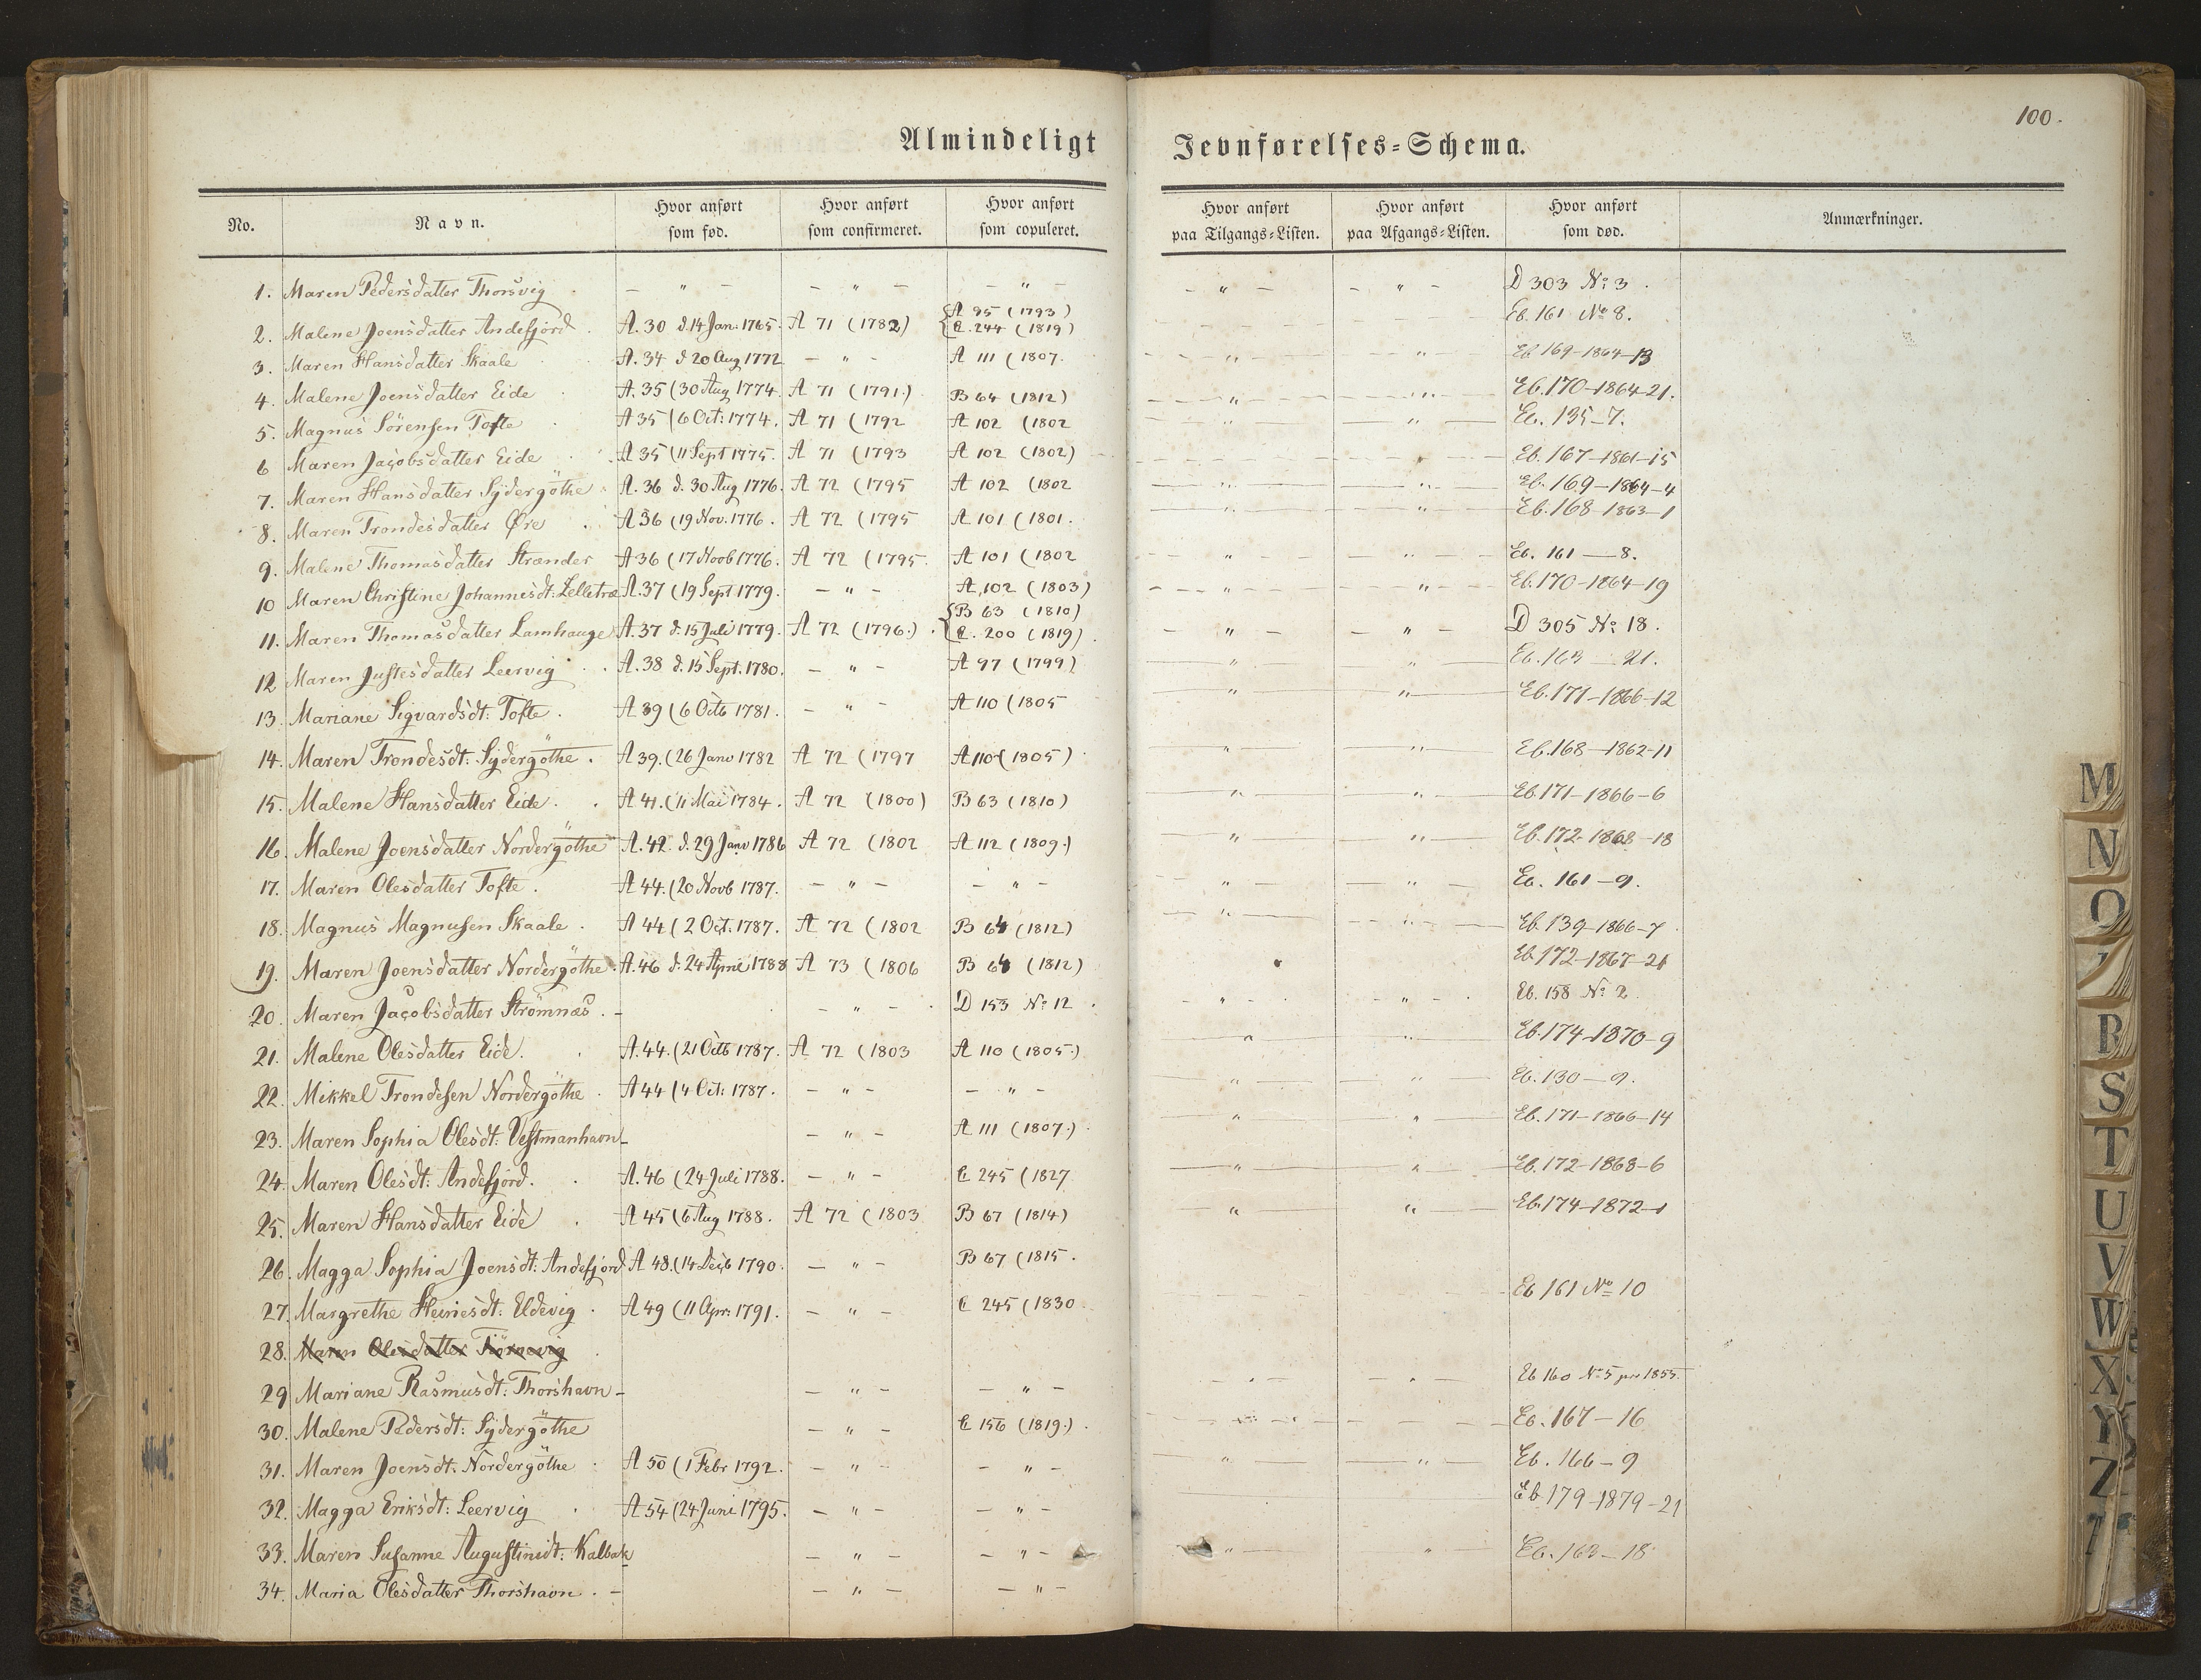 100.
Almindeligt Jevnførelses=Schema.
No. Navn. Hvor anført som fød. Hvor anført som confirmeret. Hvor anført som copuleret. Hvor anført paa Tilgangs=Listen. Hvor anført paa Afgangs=Listen. Hvor anført som død. Anmærkninger.
1. Maren Pedersdatter Thorsvig . — " — — " — — " — — " — — " — D 303 No: 3.
2. Malene Joensdatter Andefjord . A. 30 d. 14 Jan: 1765. A 71 (1782) {A 95 (1793) {C. 244 (1819) Eb. 161 No 8.
3. Maren Hansdatter Skaale A. 34 d 20 Aug 1772 — " — A 111 (1807. " " Eb 169-1864-13
4. Malene Joensdatter Eide . A. 35 (30 Aug 1774. A 71 (1791.) B 64 (1812) " " Eb. 170-1864-21.
5. Magnus Sörensen Tofte . A 35 (6 Oct: 1774. A 71 (1792 A 102 (1802 " " Eb. 135-7.
6 Maren Jacobsdatter Eide . A 35 (11 Sept 1775. A 71 (1793 A 102 (1802) " Eb. 167-1861-15
7. Maren Hansdatter Sydergöthe . A. 36 d. 30 Aug 1776. A 72 (1795 A 102 (1802 " " Eb. 169-1864-4
8. Maren Trondesdatter Øre . A 36 (19 Nov. 1776. A 72 (1795 A 101 (1801. " " Eb. 168-1863-1
9. Malene Thomasdatter Strænder A 36 (17 Novb 1776. A 72 (1795. A 101 (1802 " " Eb. 161-8.
10 Maren Christine Johannesdt: Lelletræ A. 37 (19 Sept 1779. — " — A, 102 (1803) " " Eb. 170-1864-19
11. Maren Thomasdatter Lamhauge A. 37 d. 15 Juli 1779. A 72 (1796.) . {B 63 (1810) {C. 200 (1819) . — " — — " — D 305 No: 18.
12 Maren Justesdatter Leervig . . A. 38 d. 15 Sept. 1780. — " — A 97 (1799) " " Eb. 163-21.
13. Mariane Sigvardsdt: Tofte . A 39 (6 Octb 1781. — " — A 110 (1805 " " Eb. 171-1866-12
14. Maren Trondesdt: Sydergöthe . A 39. (26 Janv 1782 A 72 (1797 A 110 (1805) " " Eb. 168-1862-11
15. Malene Hansdatter Eide . . A 41. (11 Mai 1784. A 72 (1800) B 63 (1810) " " Eb. 171-1866-6
16. Malene Joensdatter Nordergöthe A. 42 d. 29 Janv 1786 A 72 (1802 A 112 (1809.) " " Eb. 172-1868-18
17. Maren Olesdatter Tofte . A 44. (20 Novb 1787. — " — — " — " " Eb. 161-9.
18. Magnus Magnusen Skaale . A 44 (2 Oct. 1787. A 72 (1802 B 64 (1812) " " Eb. 139-1866-7
19. Maren Joensdatter Nordergöthe . A. 46 d. 24 April 1788 A 73 (1806 B 64 (1812) " Eb 172-1867-21
20. Maren Jacobsdatter Strömnæs . — — " — . D 153 No: 12 . — " — . — " — . Eb. 158 No: 2.
21. Malene Olesdatter Eide. . A. 44. (21 Octb 1787. A 72 (1803 A 110 (1805.) " " Eb. 174-1870-9
22. Mikkel Trondesen Nordergöthe . A 44 (4 Oct: 1787. — " — — " — " " Eb. 130-9.
23. Maren Sophia Olesdt: Vestmanhavn — — " — A 111 (1807.) . " " Eb. 171-1866-14
24. Maren Olesdt: Andefjord. . A. 46 (24 Juli 1788. — " — C 245 (1827 " " Eb. 172-1868-6
25. Maren Hansdatter Eide . A 45 (6 Aug 1788. A 72 (1803 B 67 (1814) " " Eb. 174-1872-1
26. Magga Sophia Joensdt: Andefjord A 48. (14 Decb 1790. — " — B 67 (1815.
27. Margrethe Heiniesdt: Eldevig . A 49 (11 Apr: 1791. — " — C 245 (1830 Eb 161 No 10
28. Maren Olesdatter Tiörnevig
29 Mariane Rasmusdt: Thorshavn — — " — — " — — " — — " — Eb 160 No 5 pro 1855.
30. Malene Pedersdt: Sydergöthe — " — C 156 (1819.) . Eb. 167-16
31. Maren Joensdt: Nordergöthe . A 50 (1 Febr 1792. — " — — " — " " Eb. 166-9
32. Magga Eriksdt: Leervig . A 54 (24 Juni 1795. — " — — " — Eb 179-1879-21
33. Maren Susanne Augustinsdt: Kalbak — " — — " — " " Eb. 163-18
34. Maria Olesdatter Thorshavn . — — " — — " —
M
N
O
R
S
T
U
V
W
X
Y
Z